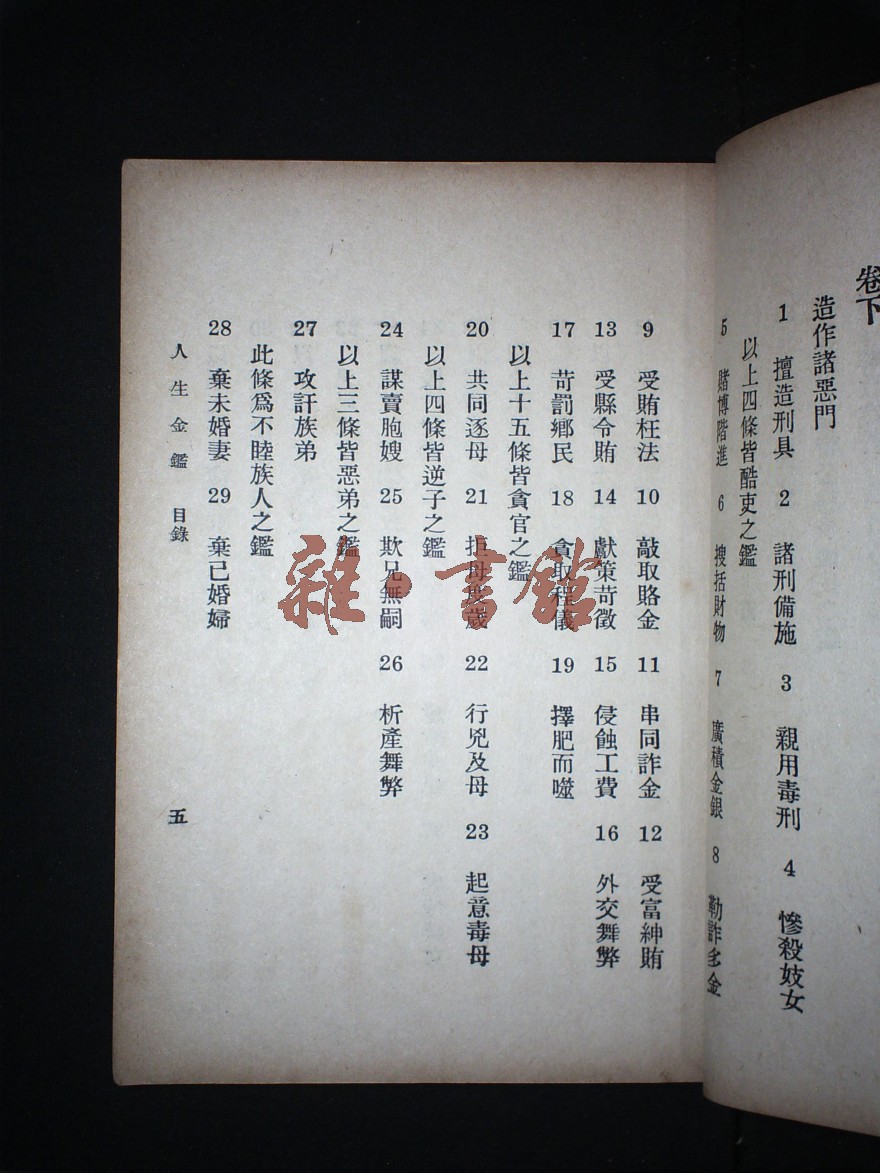 卷下
造作諸惡門
1 擅造刑具 2 諸刑備施 3 親用毒刑 4 慘殺妓女
以上四條皆酷吏之鑑
5 賭博階進 6 搜括財物 7 廣積金銀 8 勒詐多金
9 受賄枉法 10 敲取賂金 11 串同詐金 12 受富紳賄
13 受縣令賄 14 獻策苛徵 15 侵蝕工費 16 外交舞弊
17 苛罰鄉民 18 貪取程儀 19 擇肥而噬
以上十五條皆貪官之鑑
20 共同逐母 21 拒母 歲 22 行兇及母 23 起意毒母
以上四條皆逆子之鑑
24 謀賣胞嫂 25 欺兄無嗣 26 析產舞弊
以上三條皆惡弟之鑑
27 攻訐族弟
此條爲不睦族人之鑑
28 棄未婚妻 29 棄已婚婦
人生金鑑 目錄
五
雜·書館